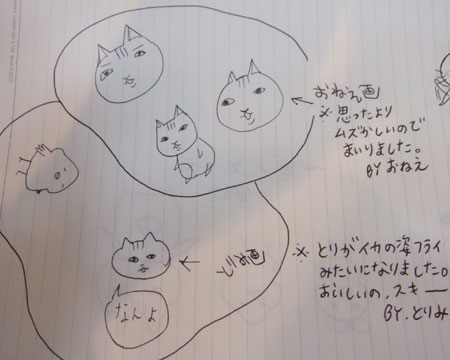 おねえ画
※思ったより
ムズかしいので
まいりました。
BYおねえ
とりみ画
なんよ
※とりがイカの姿フライ
みたいになりました。
おいしいの。スキー
BY.とりみ